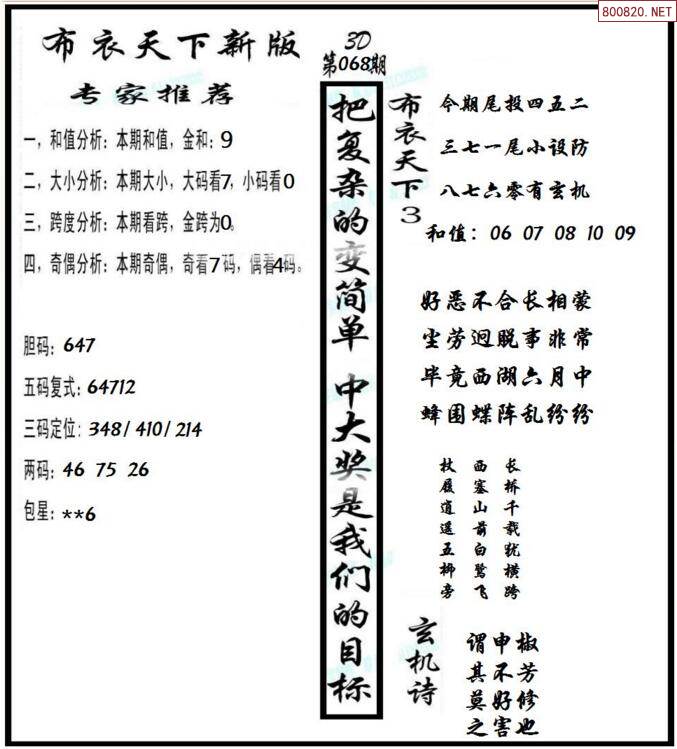 800820.NET
布衣天下新版
专家推荐
一，和值分析：本期和值，金和：9
二，大小分析：本期大小，大码看7，小码看0
三，跨度分析：本期看跨，金跨为0。
四，奇偶分析：本期奇偶，奇看7码，偶看4码。
胆码：647
五码复式：64712
三码定位：348/410/214
两码：46 75 26
包星：**6
3D
第068期
把复杂的变简单 中大奖是我们的目标
布衣天下3
今期尾投四五二
三七一尾小设防
八七六零有玄机
和值：06 07 08 10 09
好恶不合长相蒙
尘劳迥脱事非常
毕竟西湖六月中
蜂围蝶阵乱纷纷
长桥千载犹横跨
西塞山前白鹭飞
杖履逍遥五柳旁
玄机诗
椒芳修也
申不好害
谓其莫之